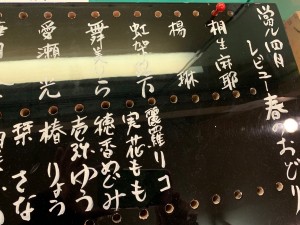 當ル四月
レビュー春のおどり
桐生麻耶
楊 琳
虹架路万
舞美りら
愛瀬 光
麗羅リコ
実花もも
穂香めぐみ
壱弥ゆう
椿りょう
栞 さな